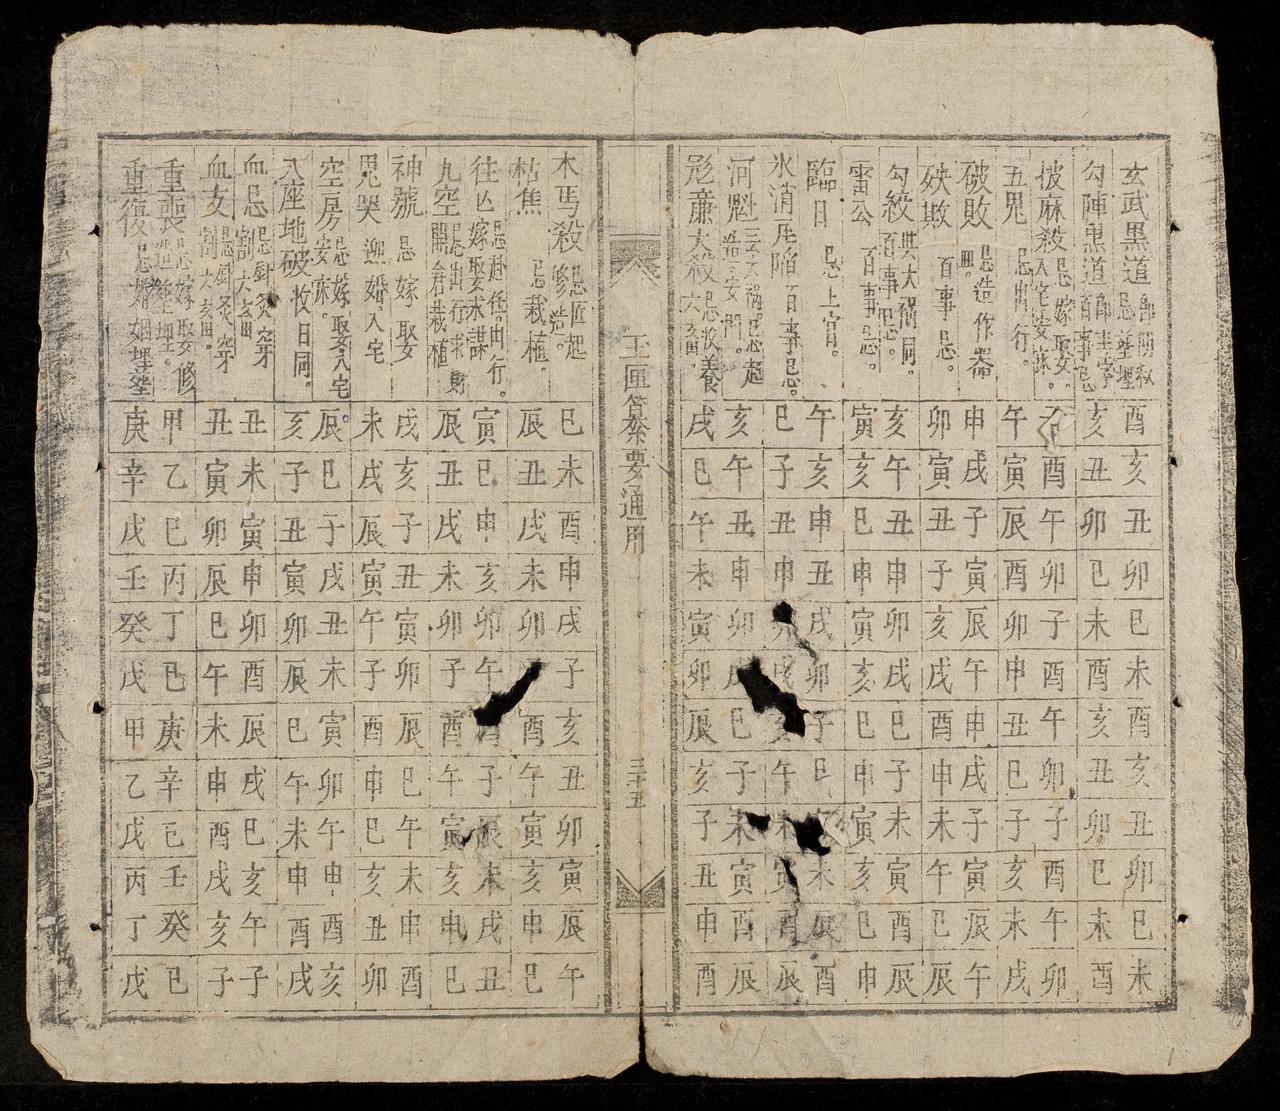 玄武黑道 忌塟埋 酉亥丑卯巳未酉亥丑卯巳未
勾陳黑道 百事忌 亥丑卯巳未酉亥丑卯巳未酉
披麻殺 忌嫁娶。入宅安床。 子酉午卯子酉午卯子酉午卯
五鬼 忌出行。 午寅辰酉卯申丑巳子亥未戌
破敗 忌造作器皿。 申戌子寅辰午申戌子寅辰午
殃敗 百事忌。 卯寅丑子亥戌酉申未午巳辰
勾絞 與大禍同。百事忌。 亥午丑申卯戌巳子未寅酉辰
雷公 百事忌。 寅亥巳申寅亥巳申寅亥巳申
臨日 忌上官。 午亥申丑戌卯子巳未辰酉
氷消瓦陷 百事忌。 巳子丑申午寅酉辰
河魁 忌起造安門。 亥午丑申卯戌巳子未寅酉辰
彪簾大殺 忌收養六畜。 戌巳午未寅卯辰亥子丑申酉
玉匣纂要通用 三十五
木馬殺 忌匠起修造。 巳未酉申戌子亥丑卯寅辰午
枯焦 忌栽植。 辰丑戌未卯酉午寅亥申巳
往亡 忌赴任。出行。嫁娶求謀 寅巳申亥卯午酉子辰未戌丑
九空 忌出行求財開倉栽植 辰丑戌未卯子酉午寅亥申巳
神號 忌嫁娶 戌亥子丑寅卯辰巳午未申酉
鬼哭 迎婚。入宅 未戌辰寅午子酉申巳亥丑卯
空房 忌嫁娶入宅安床。 辰巳子戌丑未寅卯午申酉亥
八座地破 收日同。 亥子丑寅卯辰巳午未申酉戌
血忌 忌針灸穿割六畜 丑未寅申卯酉辰戌巳亥午子
血支 忌針灸穿割六畜。 丑寅卯辰巳午未申酉戌亥子
重喪 忌嫁娶修造塟埋。 甲乙巳丙丁巳庚辛巳壬癸巳
重復 忌婚姻埋塟 庚辛戊壬癸戊甲乙戊丙丁戊